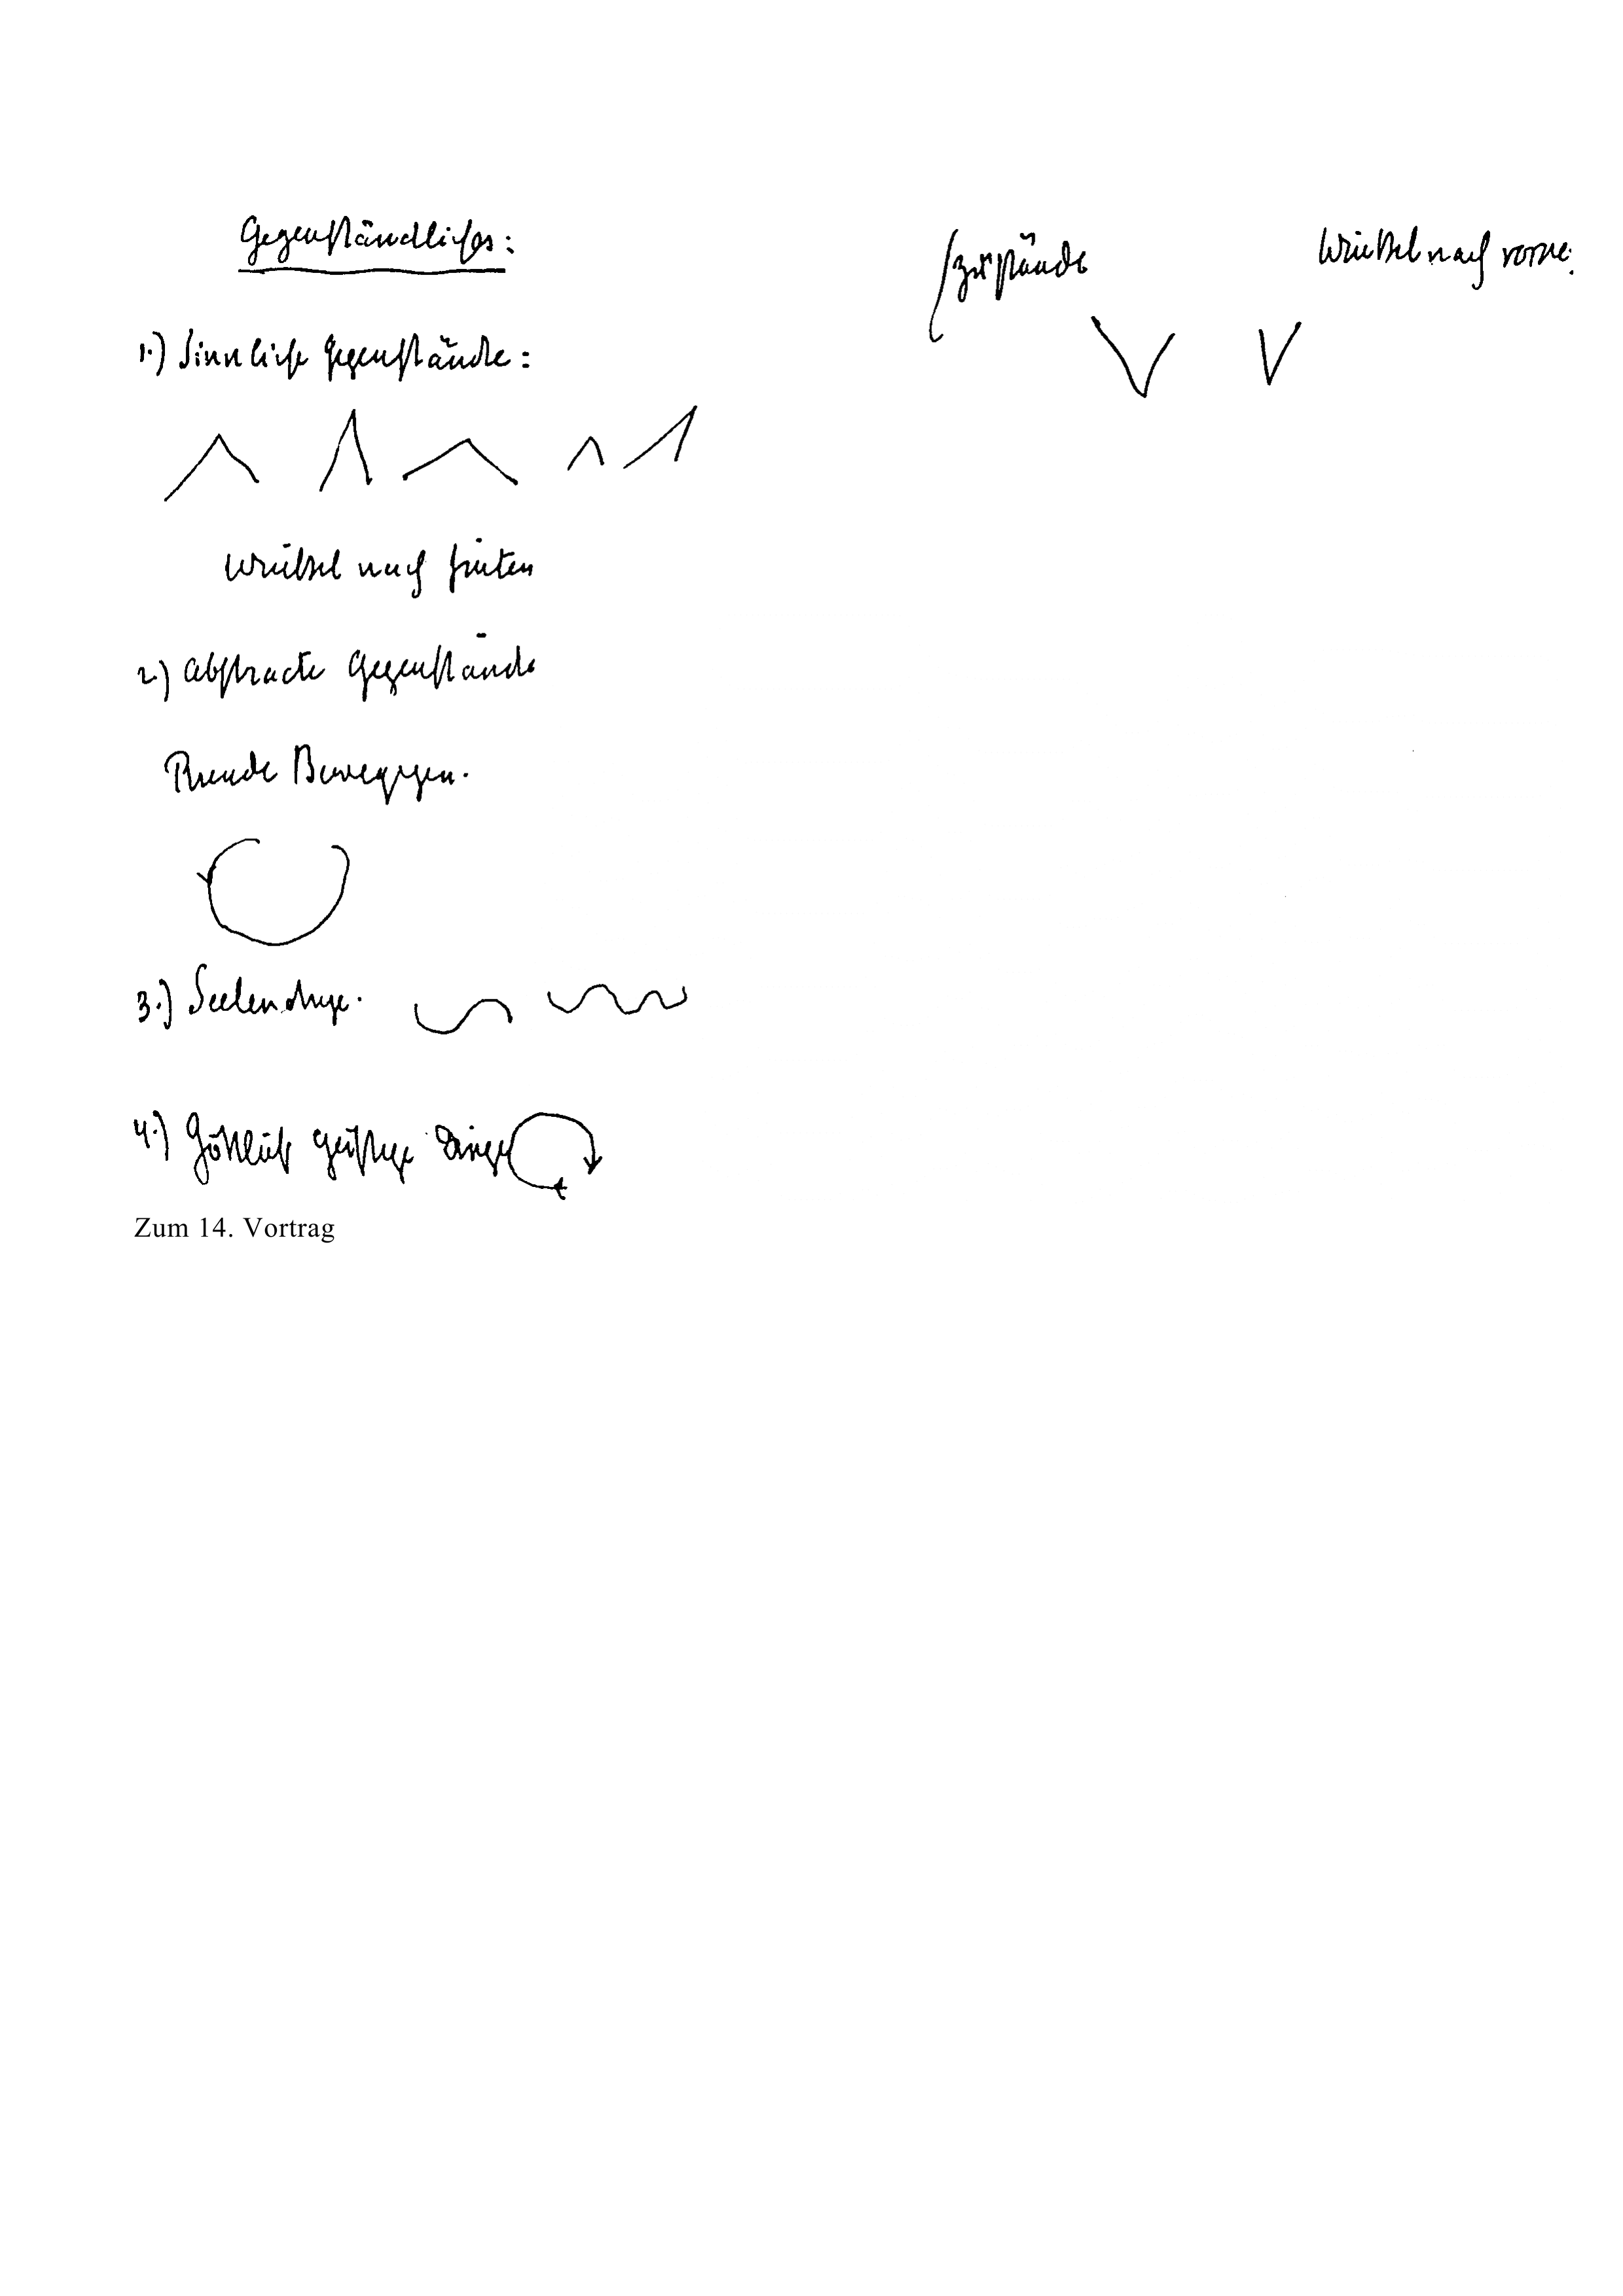 Gegenständliches:
1.) Sinnliche Gegenstände:
Winkel nach hinten
2.) Abstracte Gegenstände
Runde Bewegungen.
3.) Seelendinge.
4.) Göttlich geistige Dinge
Zum 14. Vortrag
Zustände
Winkel nach vorne.